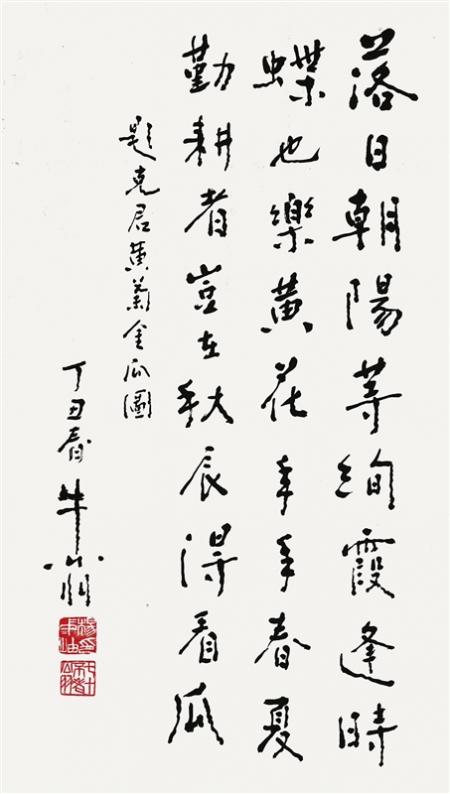 落日朝陽等絢霞逢時
蝶也樂黃花年年春夏
勤耕者豈在秋辰得看瓜
題克君黃金瓜圖
丁丑春牛翁